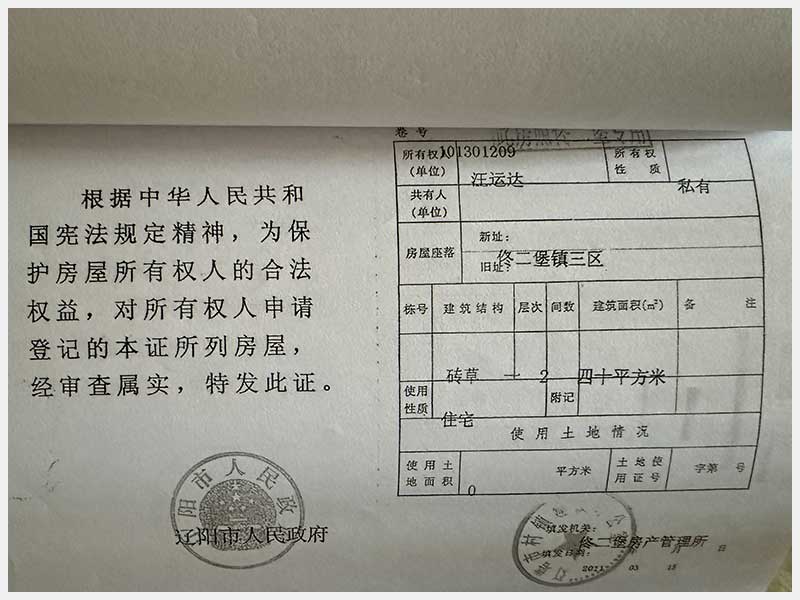 根据中华人民共和
国宪法规定精神，为保
护房屋所有权人的合法
权益，对所有权人申请
登记的本证所列房屋，
经审查属实，特发此证。
辽阳市人民政府
辽阳市人民政府
卷号
101301209
所有权人
(单位)
汪运达
所有权
性质
私有
共有人
(单位)
房屋座落
新址:
旧址:
佟二堡镇三区
栋号 建筑结构 层次 间数 建筑面积(m²) 备注
砖草 一 2 四十平方米
使用
性质
住宅
附记
使用土地情况
使用土
地面积
0
平方米
土地使
用证号
字第 号
填发机关:
佟二堡房产管理所
填发日期: 月 日
03